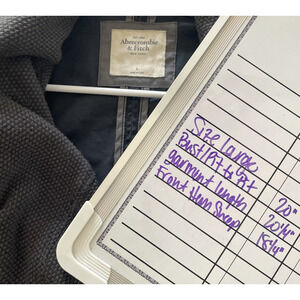 Abercrombie
& Fitch
NEW YORK
L
Size large
Bust/Pit to Pit 20"
garment length 20½"
Front Hem Sweep 18¼"